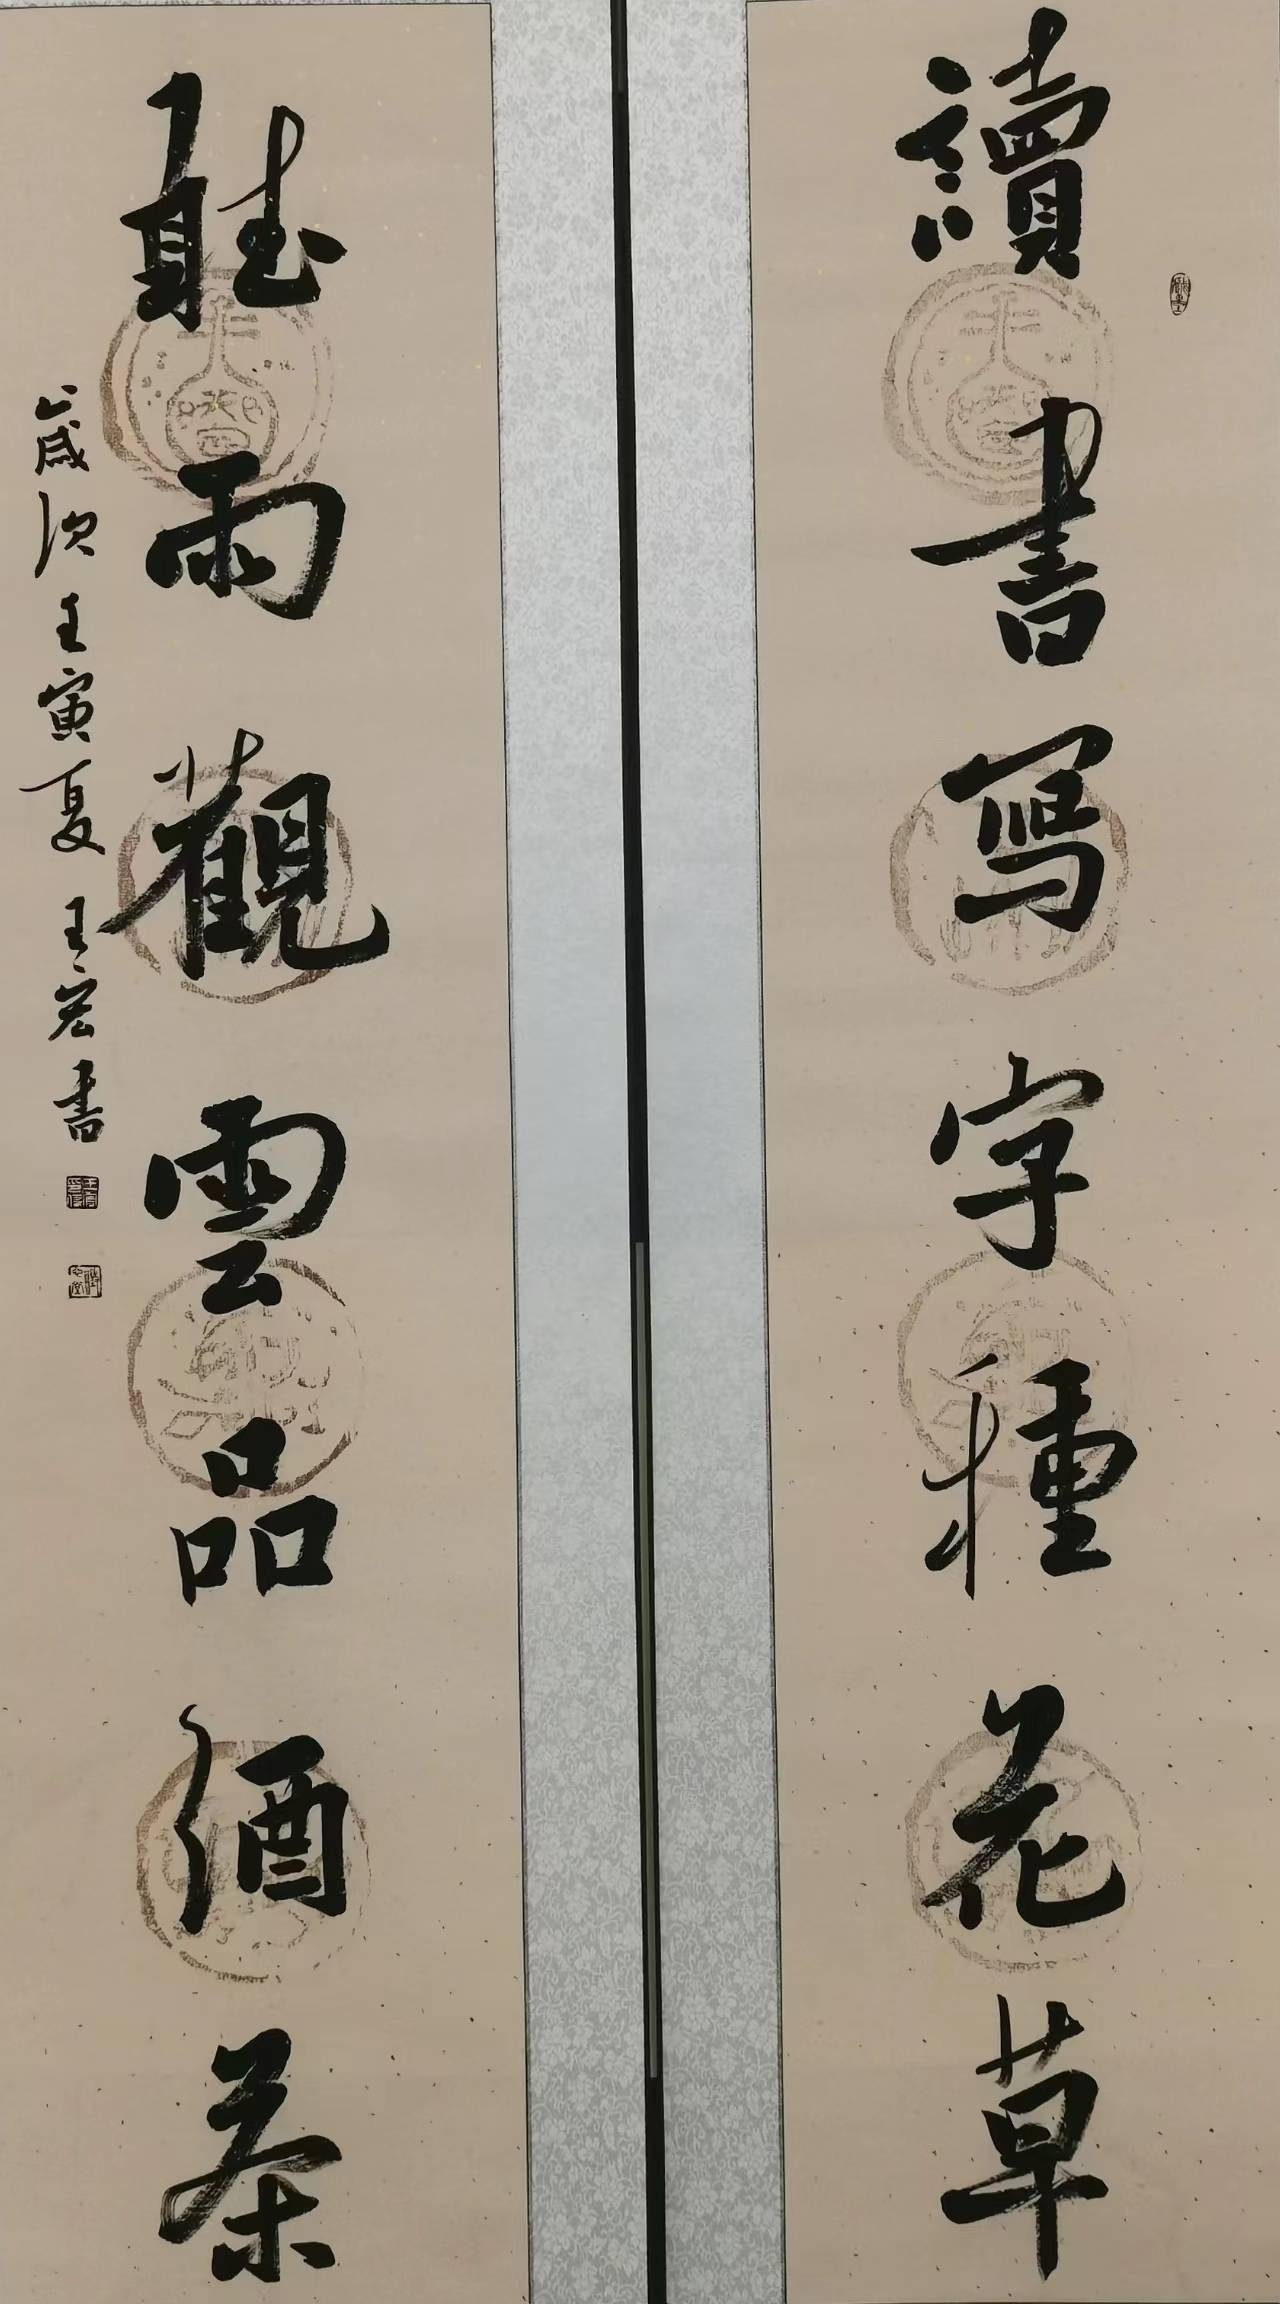 讀書写字種花草
聽雨觀雲品酒茶
歲次壬寅夏王宏書